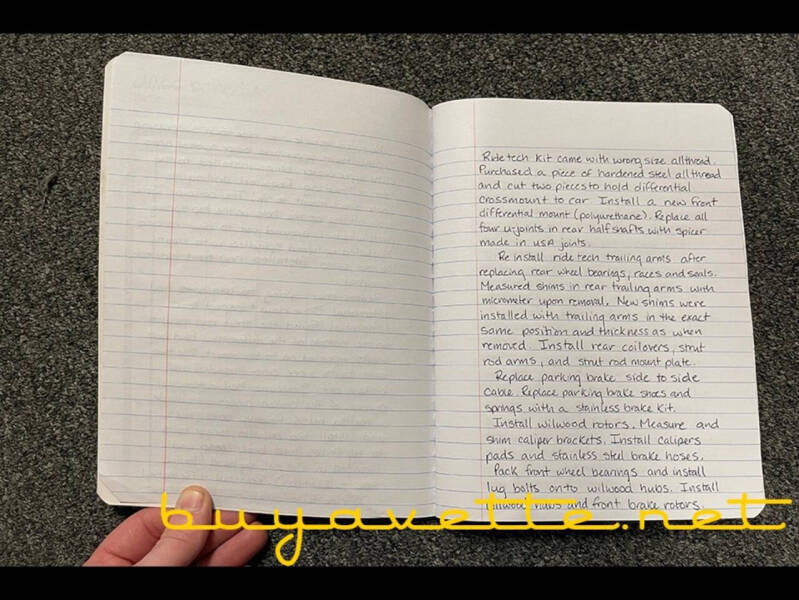 Ridetech Kit came with wrong size allthread.
Purchased a piece of hardened steel all thread
and cut two pieces to hold differential
crossmount to car. Install a new front
differential mount (polyurethane). Replace all
four u-joints in rear halfshafts with spicer
made in USA joints.
Re install ride tech trailing arms after
replacing rear wheel bearings, races and seals.
Measured shims in rear trailing arms with
micrometer upon removal. New shims were
installed with trailing arms in the exact
same position and thickness as when
removed. Install rear coilovers, strut
rod arms, and strut rod mount plate.
Replace parking brake side to side
cable. Replace parking brake shoes and
springs with a stainless brake kit.
Install wilwood rotors. Measure and
shim caliper brackets. Install calipers
pads and stainless steel brake hoses.
Pack front wheel bearings and install
lug bolts onto wilwood hubs. Install
wilwood hubs and front brake rotors.
buyavette.net